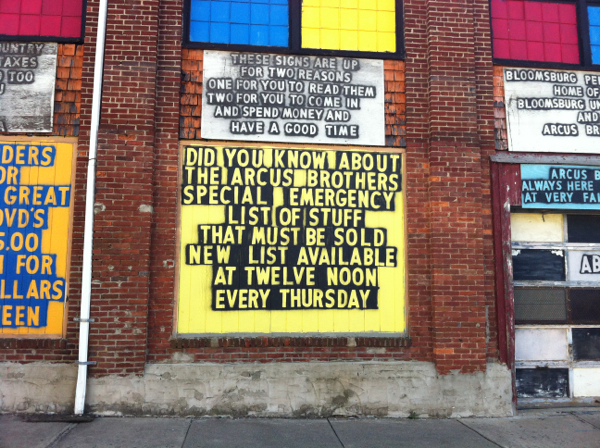 UNTRY
TAXES
TOO
U
DERS
OR
GREAT
DVD'S
5.00
N FOR
OLLARS
EEN
THESE SIGNS ARE UP
FOR TWO REASONS
ONE FOR YOU TO READ THEM
TWO FOR YOU TO COME IN
AND SPEND MONEY AND
HAVE A GOOD TIME
DID YOU KNOW ABOUT
THE ARCUS BROTHERS
SPECIAL EMERGENCY
LIST OF STUFF
THAT MUST BE SOLD
NEW LIST AVAILABLE
AT TWELVE NOON
EVERY THURSDAY
BLOOMSBURG PE
HOME OF
BLOOMSBURG UN
AND
ARCUS BR
ARCUS B
ALWAYS HERE
AT VERY FA
AB